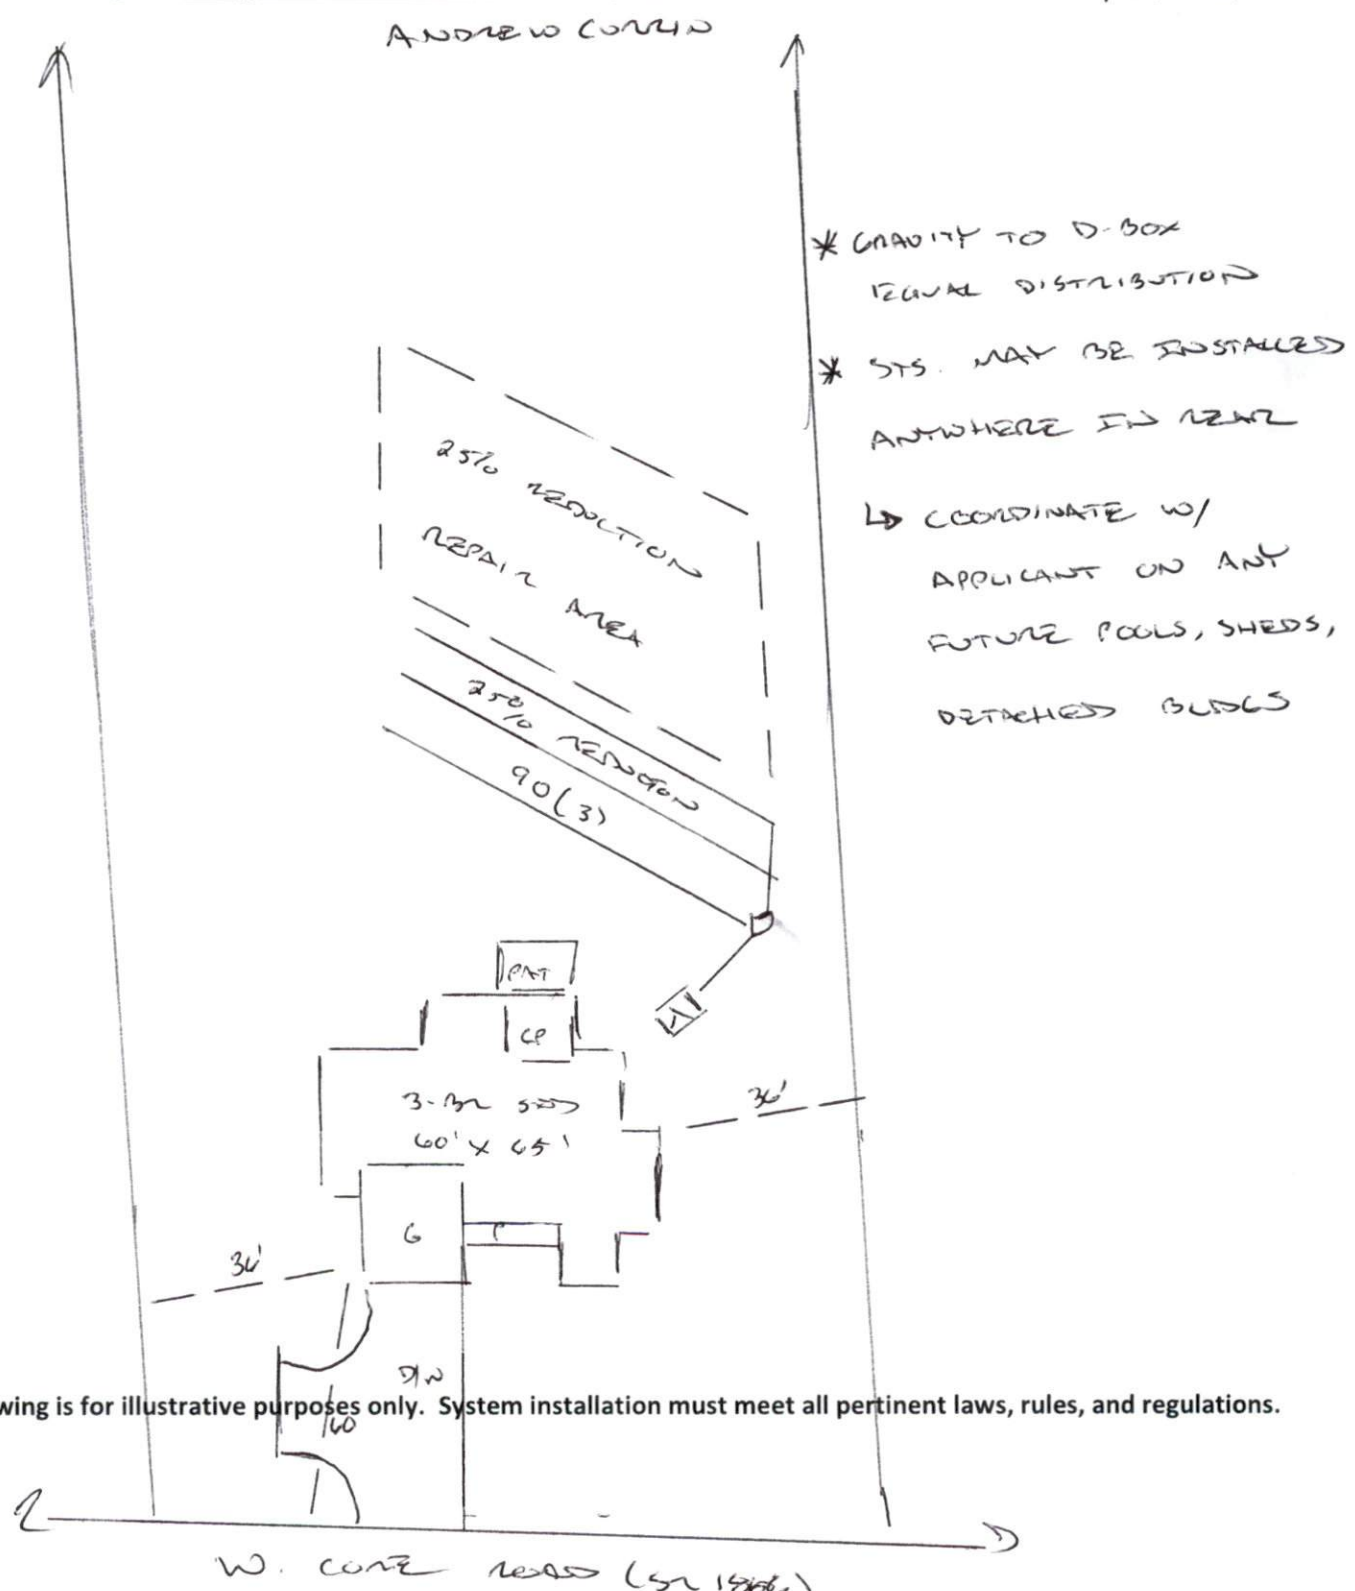 ANDREW CURRIN
* GRAVITY TO D-BOX
EQUAL DISTRIBUTION
* SYS. MAY BE INSTALLED
ANYWHERE IN REAR
↳ COORDINATE W/
APPLICANT ON ANY
FUTURE POOLS, SHEDS,
DETACHED BLDGS
25% REDUCTION
REPAIR AREA
25% REDUCTION
90(3)
PAT
CP
3-BR SFD
60' X 65'
36'
G
P
36'
D/W
wing is for illustrative purposes only. System installation must meet all pertinent laws, rules, and regulations.
60
W. CORE ROAD (SR